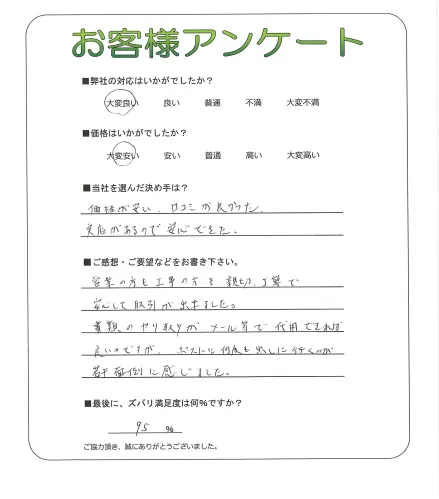 お客様アンケート
■弊社の対応はいかがでしたか?
大変良い 良い 普通 不満 大変不満
■価格はいかがでしたか?
大変安い 安い 普通 高い 大変高い
■当社を選んだ決め手は?
価格が安い、口コミが良かった、
実店があるので安心できた。
■ご感想・ご要望などをお書き下さい。
営業の方も工事の方も親切、丁寧で
安心して取引が出来ました。
書類のやり取りがメール等で代用できれば
良いのですが、ポストに何度も出しに行くのが
若干面倒に感じました。
■最後に、ズバリ満足度は何%ですか?
95 %
ご協力頂き、誠にありがとうございました。